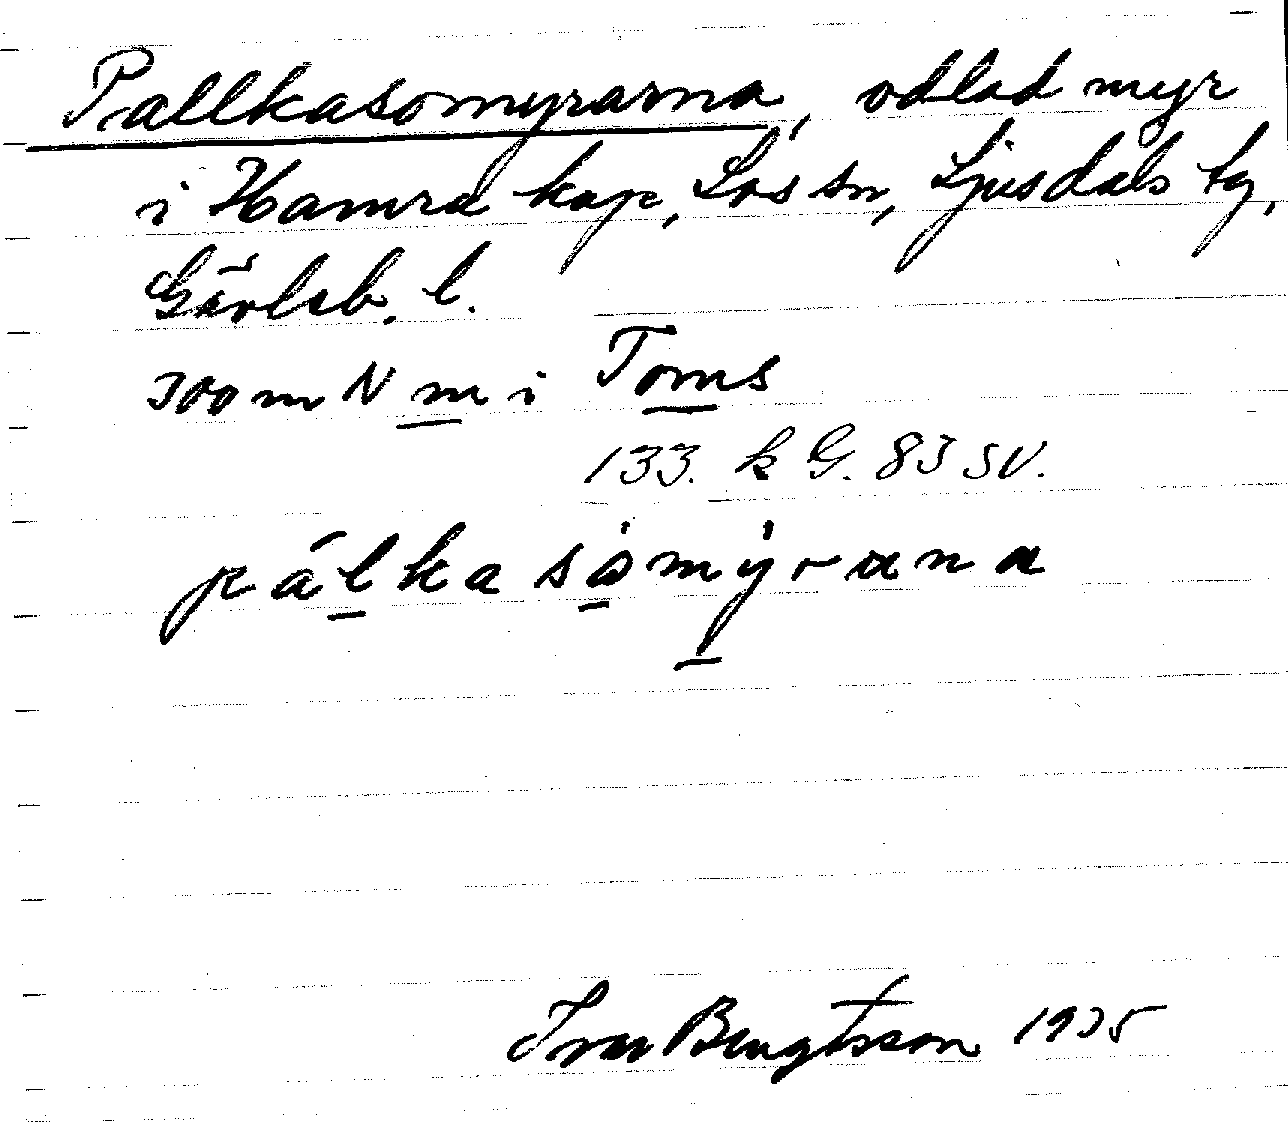 Pallkasomyrarna, odlad myr
i Hamra kap, Los sn, Ljusdals tg,
Gävleb. l.
300 m N m i Toms
133. k G. 83 SV.
pálkasòmýrana
Ivar Bengtsson 1935